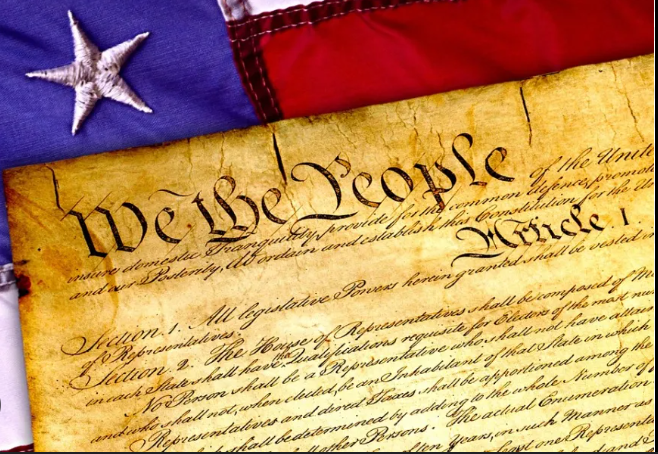 We the People of the Unite
insure domestic Tranquility, provide for the common defence, promote
and our Posterity, do ordain and establish this Constitution for the Un
Article 1.
Section 1. All legislative Powers herein granted shall be vested in
of Representatives.
Section 2. The House of Representatives shall be composed of M
in each State shall have the Qualifications requisite for Electors of the most nu
No Person shall be a Representative who shall not have attai
and who shall not, when elected, be an Inhabitant of that State in which
Representatives and direct Taxes shall be apportioned among the
shall be determined by adding to the whole Number of
other Persons. The actual Enumeration
of ten Years, in such Manner as
least one Represent